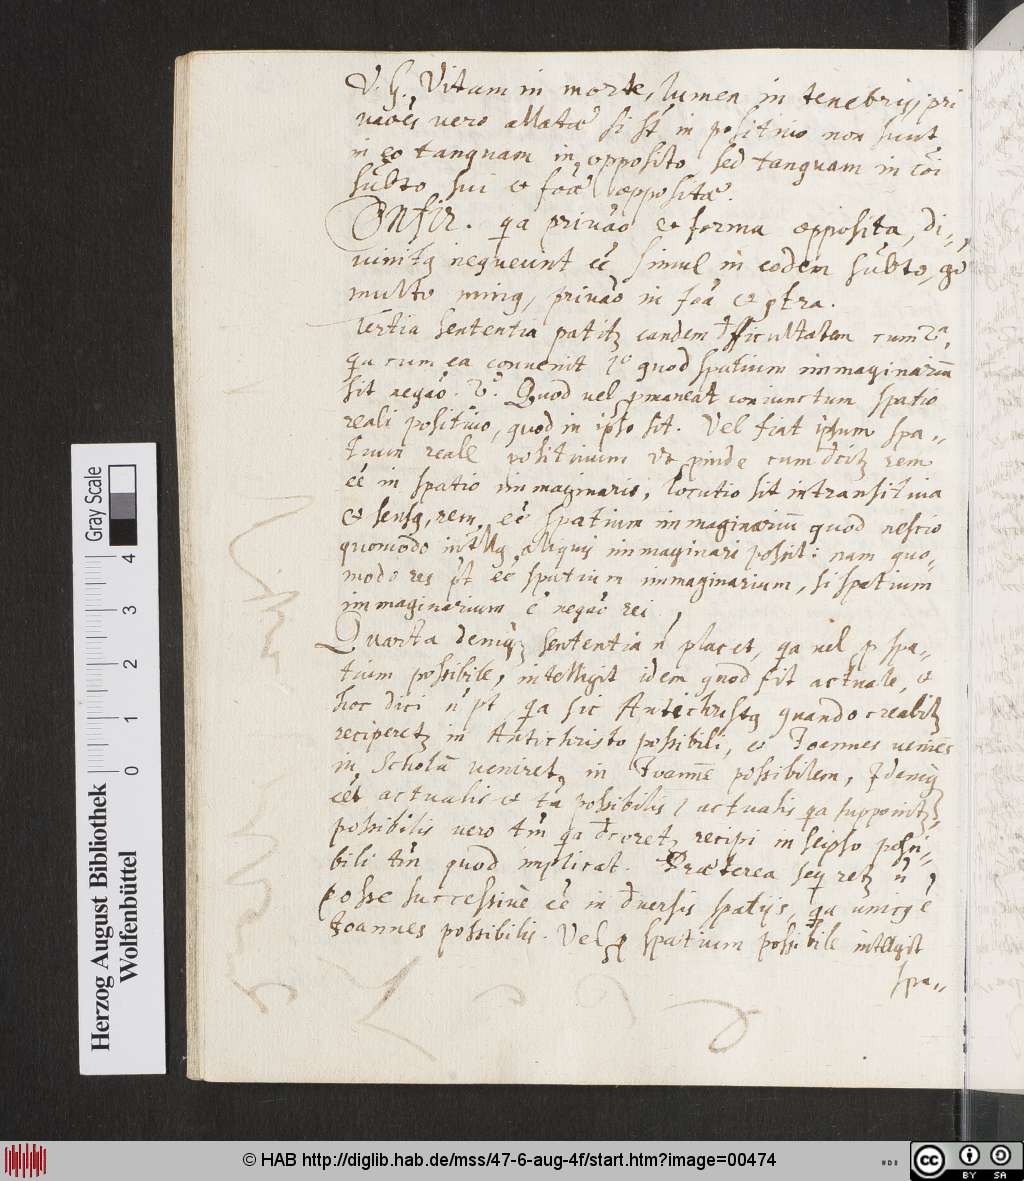 V. G. Vitam in morte, lumen in tenebris, pri
vaões vero allatæ si st in positivo non sunt
in eo tanquam in opposito sed tanquam in cõi
sub̃to sui et foæ oppositæ.
Confir. qa privão et forma opposita, di-,
vinitq nequeunt eẽ simul in eodem sub̃to, go
multo minq, privão in foa et ctra.
Tertia sententia patitz eandem difficultatem cum 2a,
qa cum ea convenit 1o quod spatium immaginariũ
sit negão. 2o. Quod vel pmaneat coniunctum spatio
reali positivo, quod in ipso sit. Vel fiat ipsum spa-
tium reale positivum et pinde cum dicitz rem
eẽ in spatio immaginario, locutio sit intransitiva
et sensq, rem eẽ spatium immaginariũ quod nescio
quomodo intllg aliquis immaginari possit: nam quo-
modo res pt eẽ spatium immaginarium, si spatium
immaginarium ẽ negão rei.
Quarta deniqz sententia ñ placet, qa vel p spa-
tium possibile, intelligit idem quod fit actuale, et
hoc dici ñ pt, qa sic Antichristq quando creabitz
reciperetz in Antichristo possibili, et Joannes veniẽs
in Scholã veniret in Joannẽ possibilem,
eẽt actualis et tñ possibilis, actualis qa supponitz,
possibilis vero tm̃ qa diceretz recipi in seipso possi-
bili tm̃ quod implicat. Præterea seqretz ñ
posse successivè eẽ in diversis spatijs, qa unicq ẽ
Joannes possibilis. Vel p spatium possibile intelligit
spa-
Herzog August Bibliothek
Wolfenbüttel
Gray Scale
0 1 2 3 4
© HAB http://diglib.hab.de/mss/47-6-aug-4f/start.htm?image=00474
cc BY SA